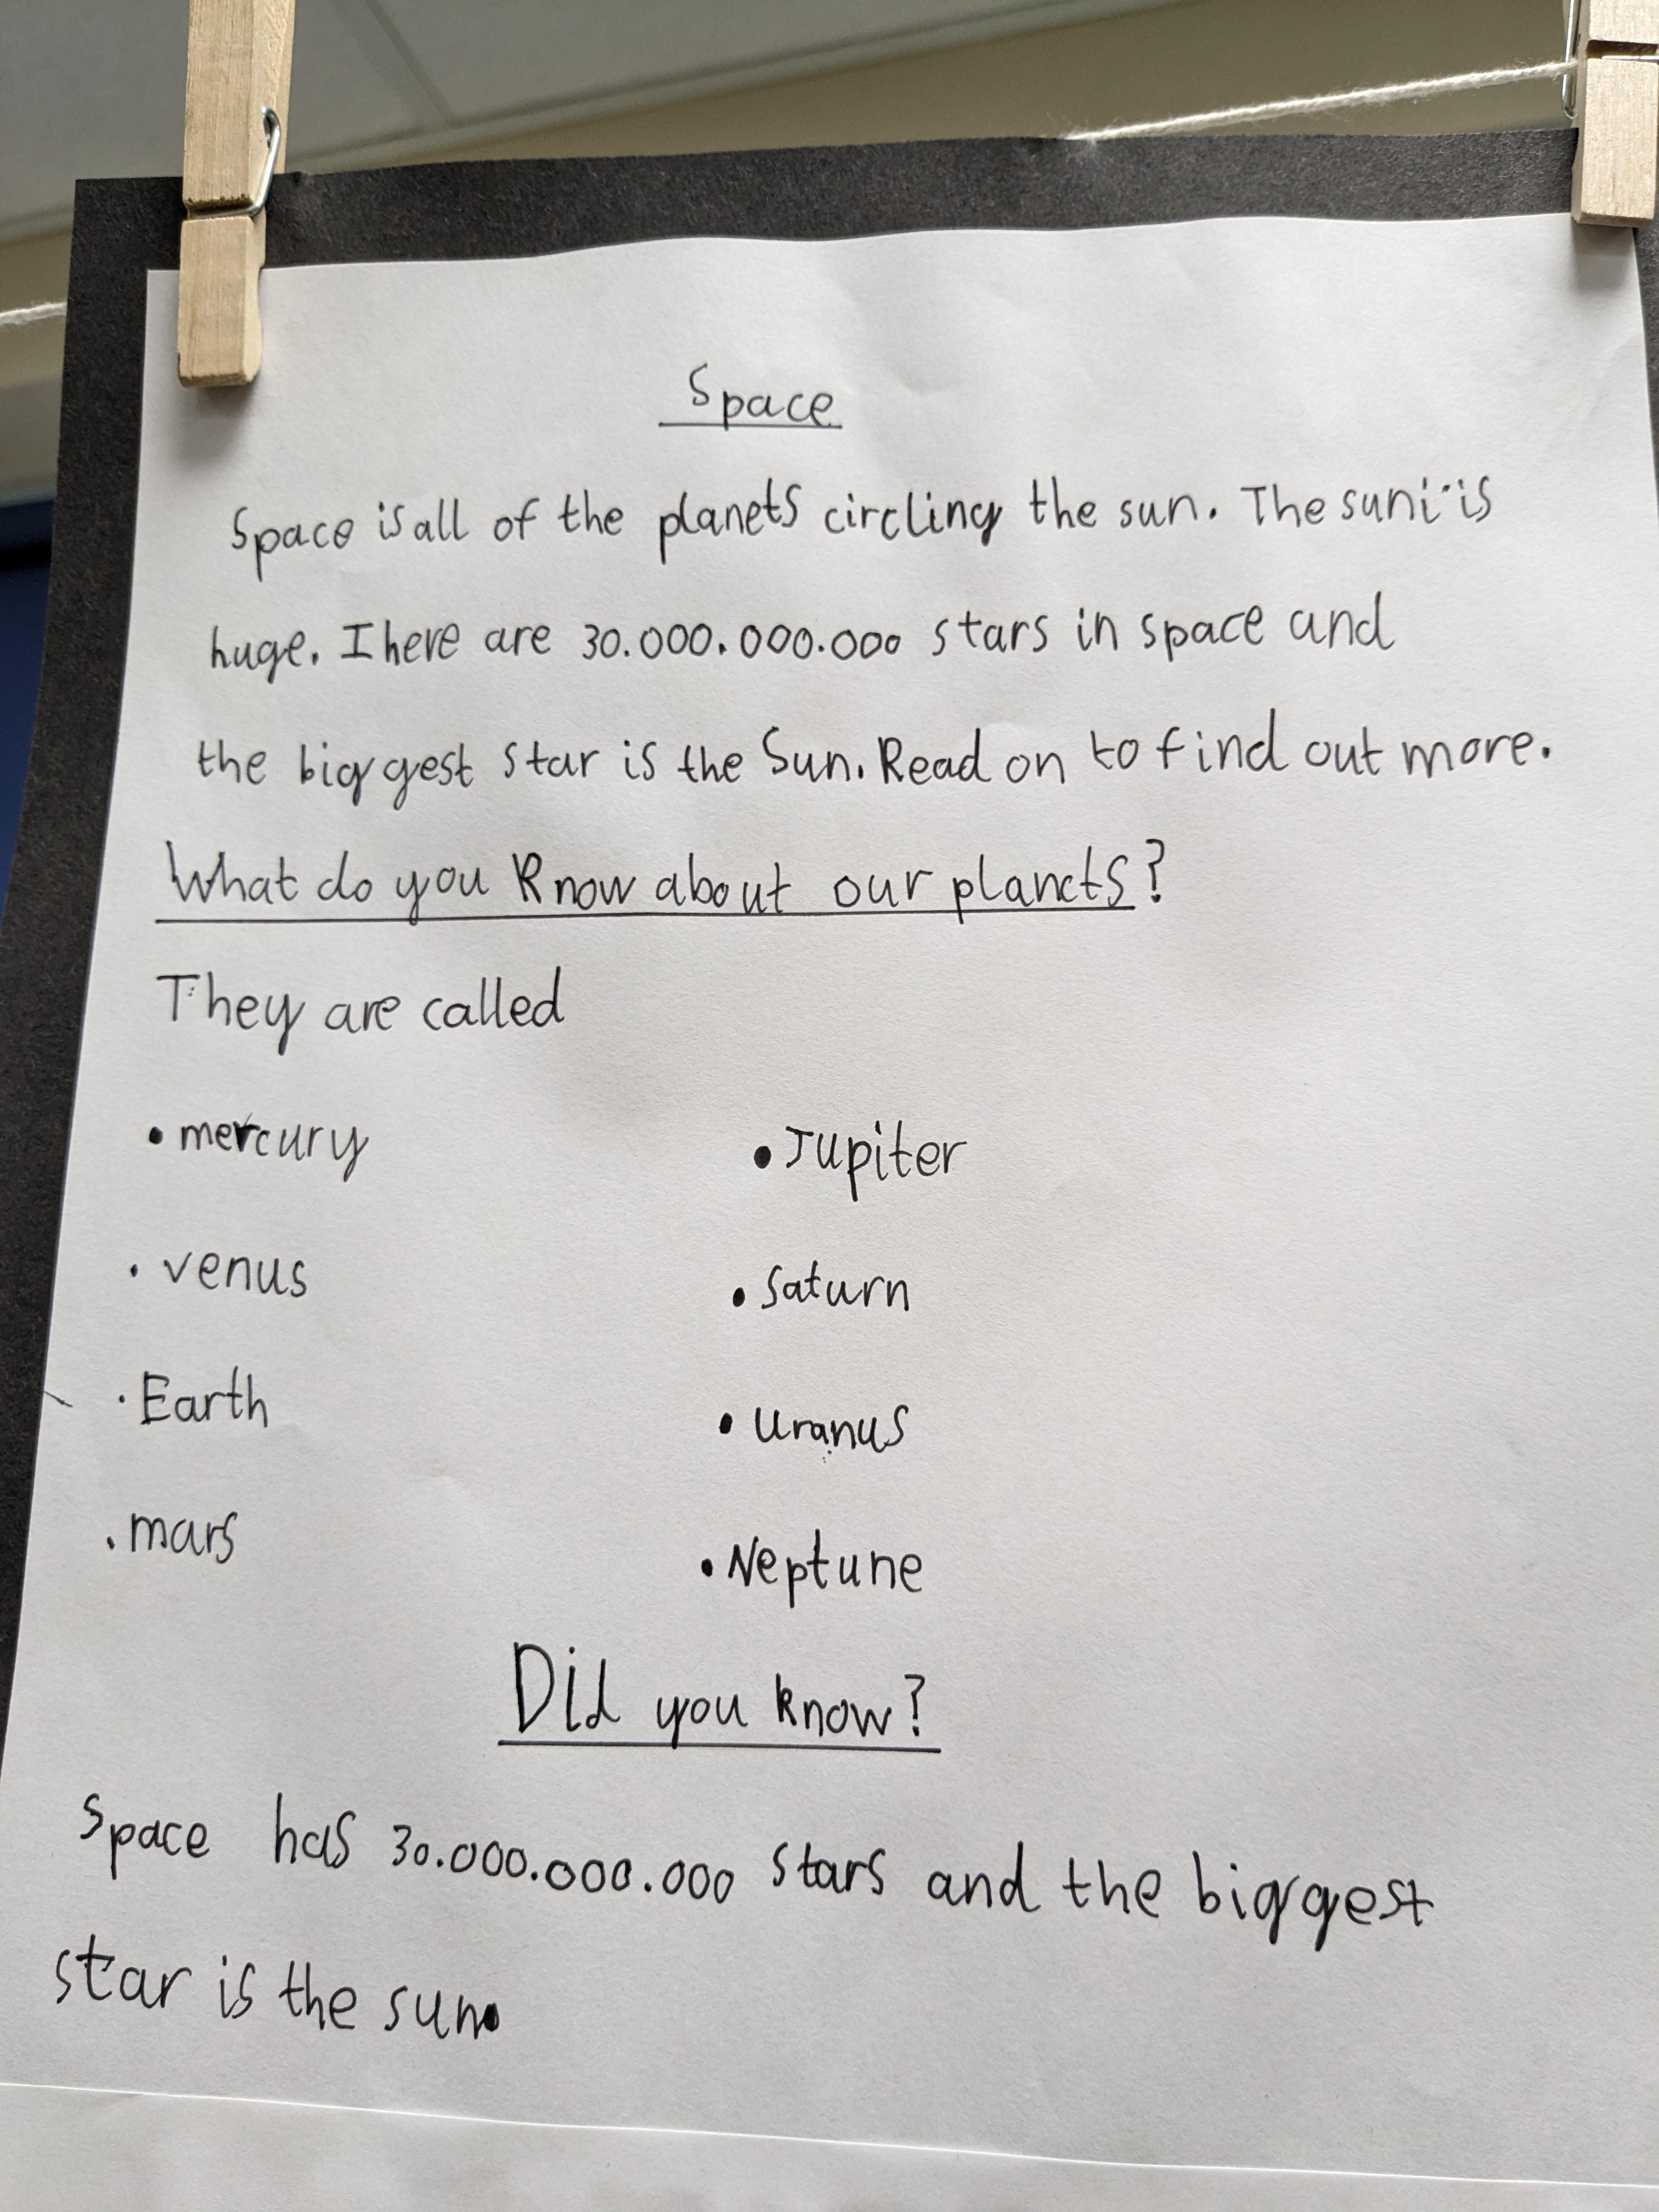 Space
Space is all of the planets circling the sun. The sun is
huge. There are 30.000.000.000 stars in space and
the biggest star is the Sun. Read on to find out more.
What do you Know about our planets?
They are called
• mercury
• Jupiter
• venus
• Saturn
• Earth
• Uranus
• mars
• Neptune
Did you know?
Space has 30.000.000.000 stars and the biggest
star is the sun.